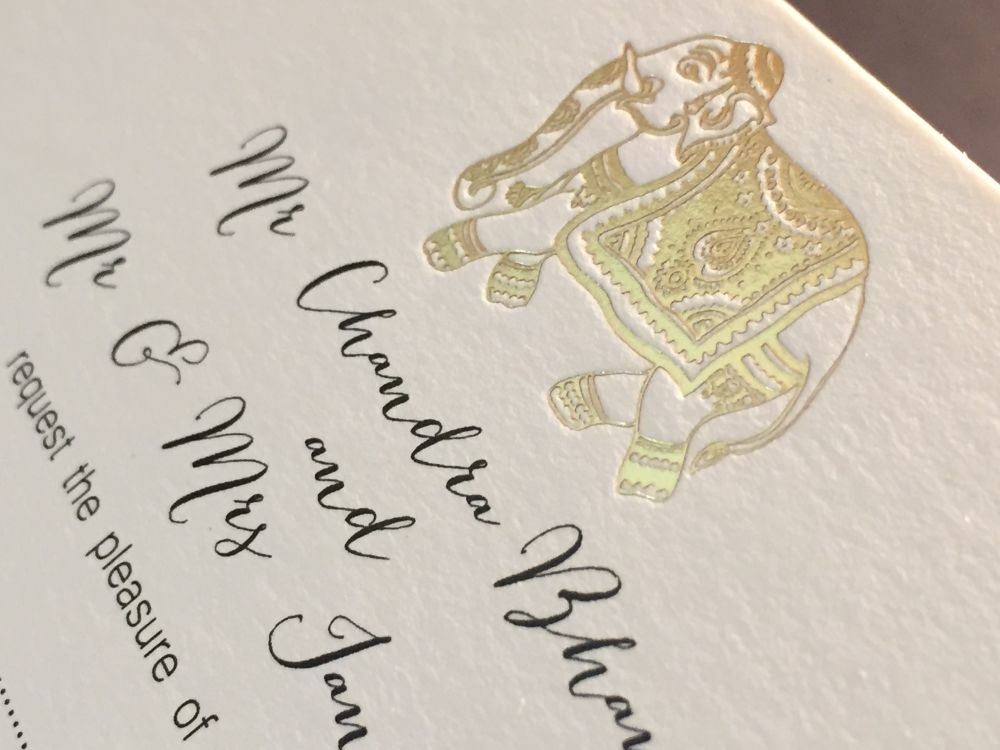 Mr Chandra Bhan
and
Mr & Mrs
request the pleasure of